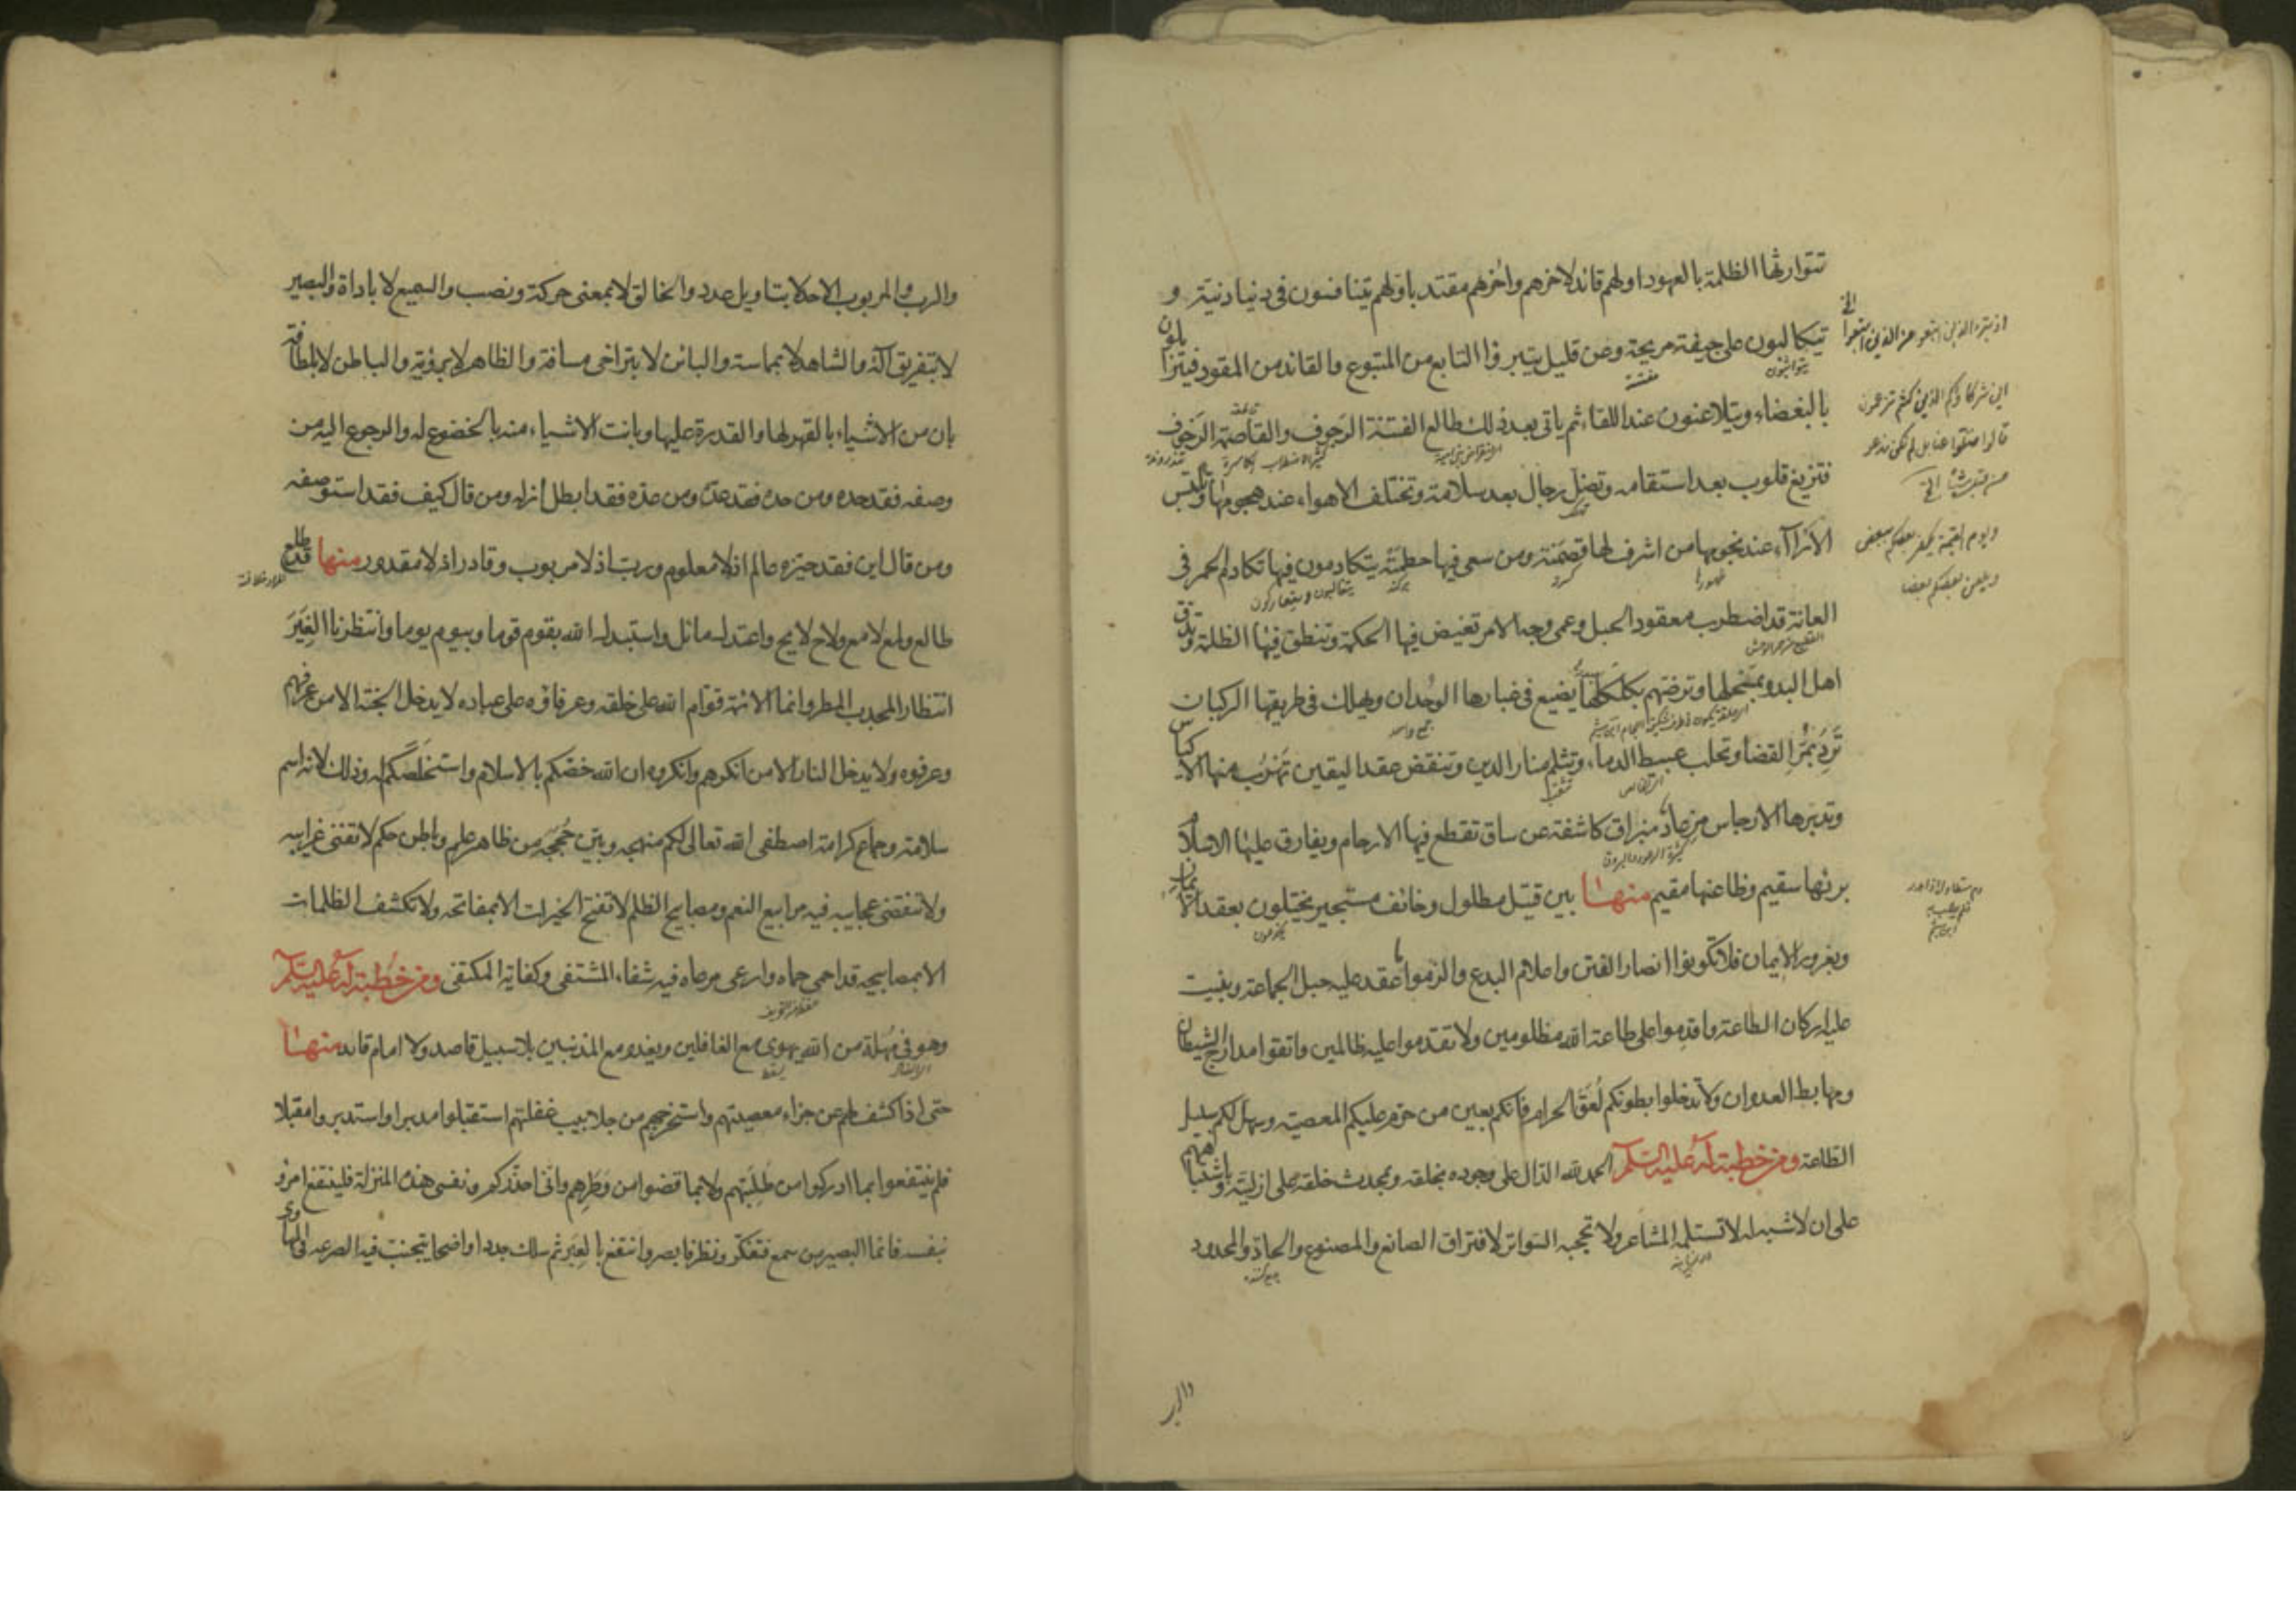 تتوارثها الظلمة بالعهود اولهم قائد لاخرهم واخرهم مقتد باولهم يتنافسون في دنيا دنية و
يتكالبون على جيفة مريحة وعن قليل يتبرؤا التابع من المتبوع والقائد من المقود فيتزايلون
بالبغضاء ويتلاعنون عند اللقاء ثم ياتى بعد ذلك طالع الفتنة الرجوف والقاصمة الزحوف
فتزيغ قلوب بعد استقامه وتضل رجال بعد سلامة وتختلف الاهواء عند هجومها وتلتبس
الاراآء عند نجومها من اشرف لها قصمته ومن سعى فيها حطمته يتكادمون فيها تكادم الحمر فى
العانة قد اضطرب معقود الحبل وعمى وجه الامر تغيض فيها الحكمة وتنطق فيها الظلمة وتدق
اهل البدو بمسحلها وترضهم بكلكلها يضيع فى غبارها الوحدان ويهلك فى طريقها الركبان
ترد بمر القضا وتحلب عبيط الدماء وتثلم منار الدين وتنقض عقد اليقين تهرب منها الاكياس
وتدبرها الارجاس مرعاد مبراق كاشفة عن ساق تقطع فيها الارحام ويفارق عليها الاسلام
بريها سقيم وظاعنها مقيم منها بين قتيل مطلول وخائف مستجير يختلون بعقد الايمان
وبغرور الايمان فلا تكونوا انصار الفتن واعلام البدع والزموا ما عقد عليه حبل الجماعة وبنيت
عليه اركان الطاعة واقدموا على طاعة الله مظلومين ولا تقدموا عليه ظالمين واتقوا مدارج الشيطان
ومهابط العدوان ولا تدخلوا بطونكم لعق الحرام فانكم بعين من حرم عليكم المعصية وسهل لكم سبيل
الطاعة ومن خطبة له عليه السلام الحمد لله الدال على وجوده بخلقه وبمحدث خلقه على ازليته وباشتباههم
على ان لا شبه له لا تستلمه المشاعر ولا تحجبه السواتر لافتراق الصانع والمصنوع والحاد والمحدود
اذ تبرء الذين اتبعوا من الذين اتبعوا الخ
اين شركاؤكم الذين كنتم تزعمون
قالوا ضلوا عنا بل لم نكن ندعو
من قبل شيئا الخ
ويوم القيمة يكفر بعضكم ببعض
ويلعن بعضكم بعضا
والرب
والرب والمربوب الاحد لا بتاويل عدد والخالق لا بمعنى حركة ونصب والسميع لا باداة والبصير
لا بتفريق آلة والشاهد لا بمماسة والبائن لا بتراخى مسافة والظاهر لا برؤية والباطن لا بلطافة
بان من الاشياء بالقهر لها والقدرة عليها وبانت الاشياء منه بالخضوع له والرجوع اليه من
وصفه فقد حده ومن حده فقد عده ومن عده فقد ابطل ازله ومن قال كيف فقد استوصفه
ومن قال اين فقد حيزه عالم اذ لا معلوم ورب اذ لا مربوب وقادر اذ لا مقدور منها قد طلع
طالع ولمع لامع ولاح لايح واعتدل مائل واستبدل الله بقوم قوما وبيوم يوما وانتظرنا الغير
انتظار المجدب المطر وانما الائمة قوام الله على خلقه وعرفاؤه على عباده لا يدخل الجنة الا من عرفهم
وعرفوه ولا يدخل النار الا من انكرهم وانكروه ان الله خصكم بالاسلام واستخلصكم له وذلك لانه اسم
سلامة وجماع كرامة اصطفى الله تعالى لكم منهجه وبين حججه من ظاهر علم وباطن حكم لا تفنى غرايبه
ولا تنقضى عجايبه فيه مرابيع النعم ومصابيح الظلم لا تفتح الخيرات الا بمفاتحه ولا تكشف الظلمات
الا بمصابيحه قد احمى حماه وارعى مرعاه فيه شفاء المشتفى وكفاية المكتفى ومن خطبة له عليه السلام
وهو فى مهلة من الله يهوى مع الغافلين ويغدو مع المذنبين بلا سبيل قاصد ولا امام قائد منها
حتى اذا كشف لهم عن جزاء معصيتهم واستخرجهم من جلابيب غفلتهم استقبلوا مدبرا واستدبروا مقبلا
فلم ينتفعوا بما ادركوا من طلبتهم ولا بما قضوا من وطرهم وانى احذركم ونفسى هذه المنزلة فلينتفع امرؤ
بنفسه فانما البصير من سمع فتفكر ونظر فابصر وانتفع بالعبر ثم سلك جددا واضحا يتجنب فيه الصرعة فى المهاوى